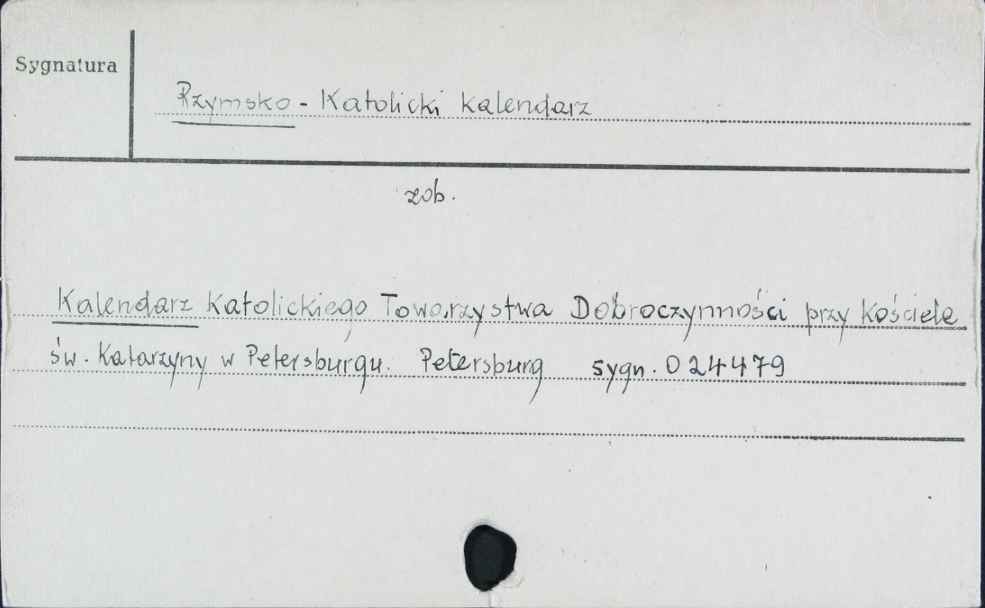 Sygnatura
Rzymsko - Katolicki kalendarz
zob.
Kalendarz Katolickiego Towarzystwa Dobroczynności przy kościele
św. Katarzyny w Petersburgu. Petersburg sygn. 024479